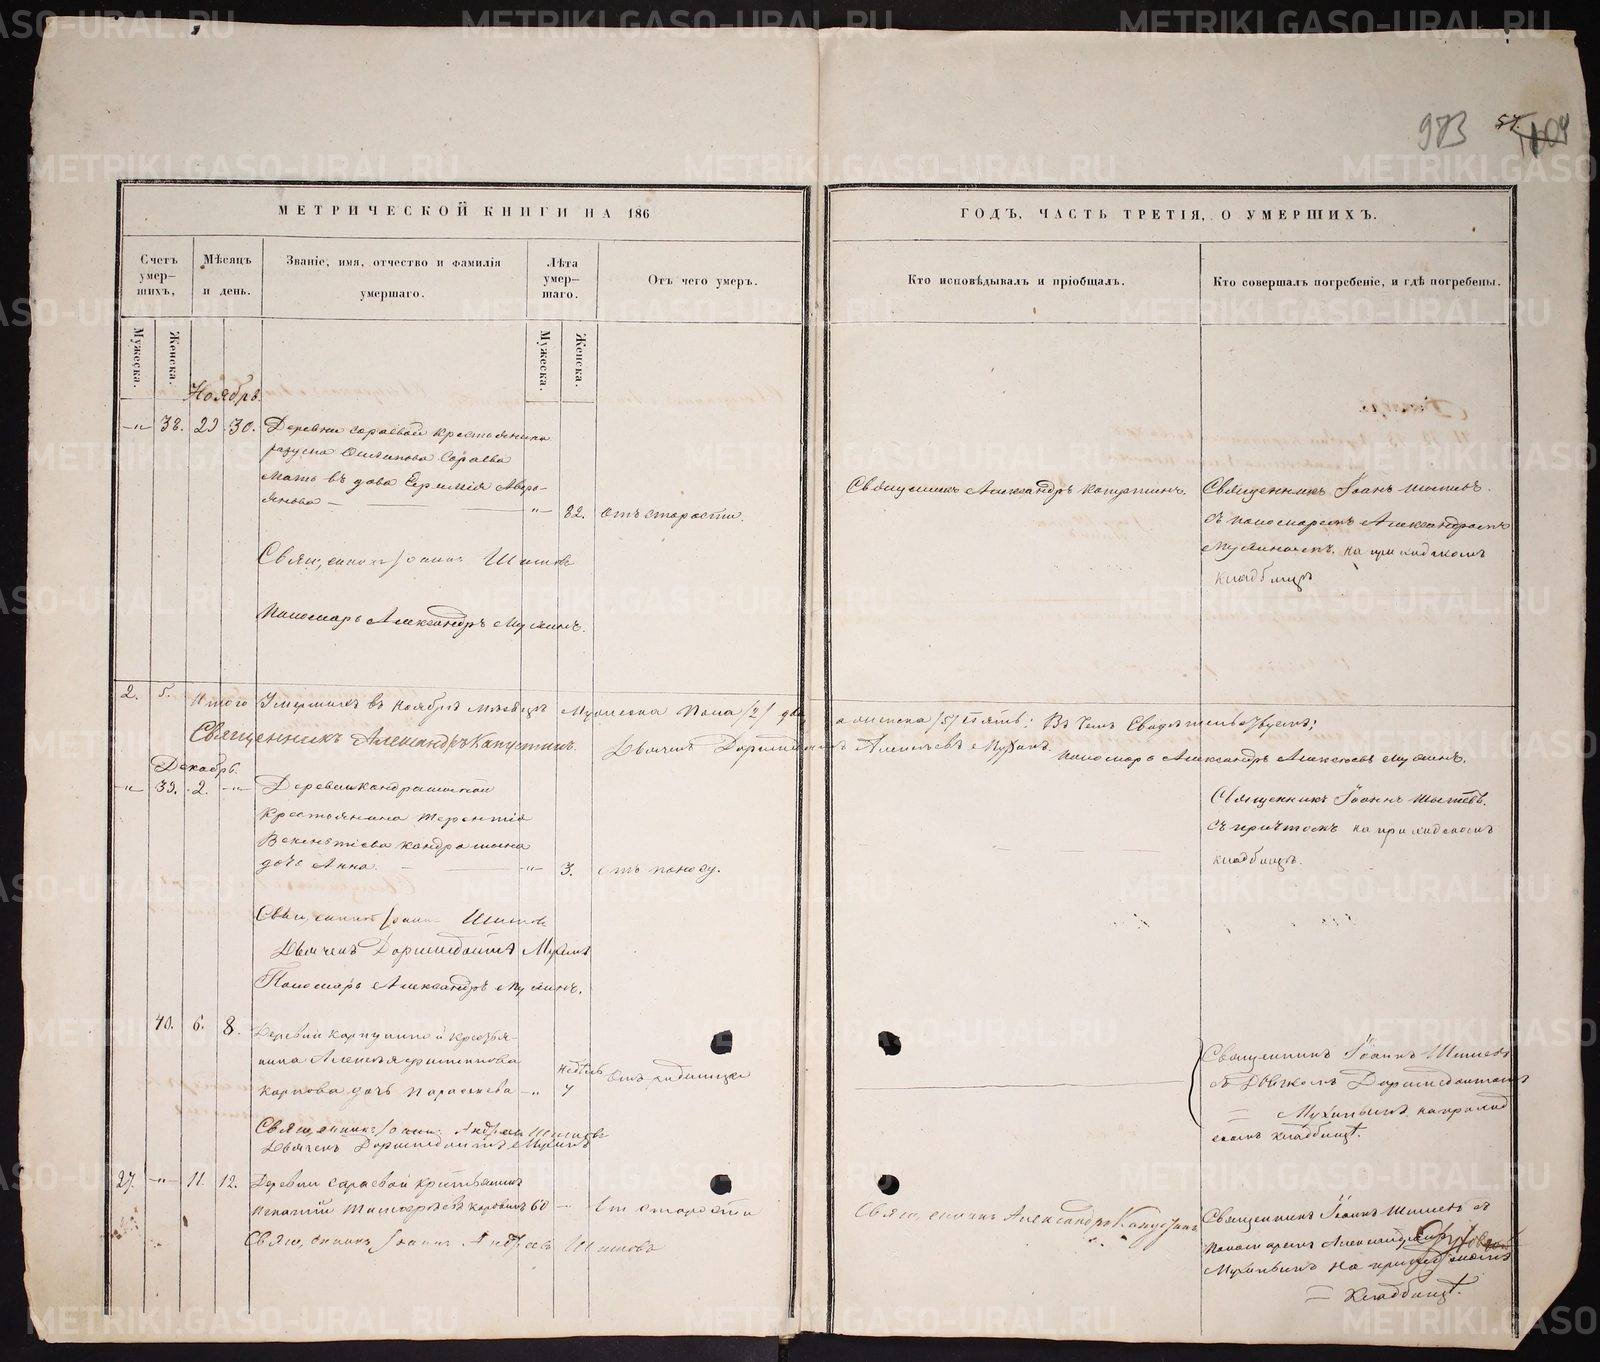 973 57. 104
МЕТРИЧЕСКОЙ КНИГИ НА 186
ГОДЪ, ЧАСТЬ ТРЕТІЯ, О УМЕРШИХЪ.
Счетъ умер-шихъ,
Мѣсяцъ и день.
Званіе, имя, отчество и фамилія умершаго.
Лѣта умер-шаго.
Отъ чего умеръ.
Кто исповѣдывалъ и пріобщалъ.
Кто совершалъ погребеніе, и гдѣ погребены.
Мужеска.
Женска.
Мужеска.
Женска.
Ноябрь.
-"- 38. 29 30. Деревни Сораевой крестьянина
Сораева
мать вдова
-"- 82. отъ старости.
Священникъ Александръ Капустинъ.
Священникъ Іоаннъ Шишевъ.
съ пономаремъ Александромъ
на приходскомъ
кладбищѣ
Священникъ Іоаннъ
Пономарь Александръ Мухинъ.
2. 5. Итого Умершихъ въ Ноябрѣ мѣсяцѣ Мужеска Пола /2/ два, женска /5/ пять: Въ чемъ Свидѣтельствуемъ:
Священникъ Александръ Капустинъ.
Дьячекъ Доримедонтъ Алексѣевъ Мухинъ.
Пономарь Александръ Алексѣевъ Мухинъ.
Декабрь.
-"- 39. 2. -"- Деревни Кондрашиной
Крестьянина Терентія
Кондрашина
дочь Анна. -"- 3. отъ поносу.
Священникъ Іоаннъ Шишевъ.
съ причтомъ на приходскомъ
кладбищѣ.
Священникъ Іоаннъ
Дьячекъ Доримедонтъ Мухинъ
Пономарь Александръ Мухинъ.
40. 6. 8. Деревни Карпушиной крестья-
нина Алексѣя Филиппова
Карпова дочь Параскева -"- недѣль 7 Отъ родимца
Священникъ Іоаннъ Шишевъ
съ Дьячкомъ Доримедонтомъ
Мухинымъ на приход
скомъ кладбищѣ.
Священникъ Іоаннъ Андреевъ
Дьячекъ Доримедонтъ Мухинъ
27. -"- 11. 12. Деревни Сараевой крестьянинъ
Игнатій 60 - Отъ старости
Священникъ Александръ Капустинъ
Священникъ Іоаннъ Шишевъ съ
Пономаремъ Александромъ
Мухинымъ на приходскомъ
кладбищѣ.
Священникъ Іоаннъ Андреевъ
METRIKI.GASO-URAL.RU